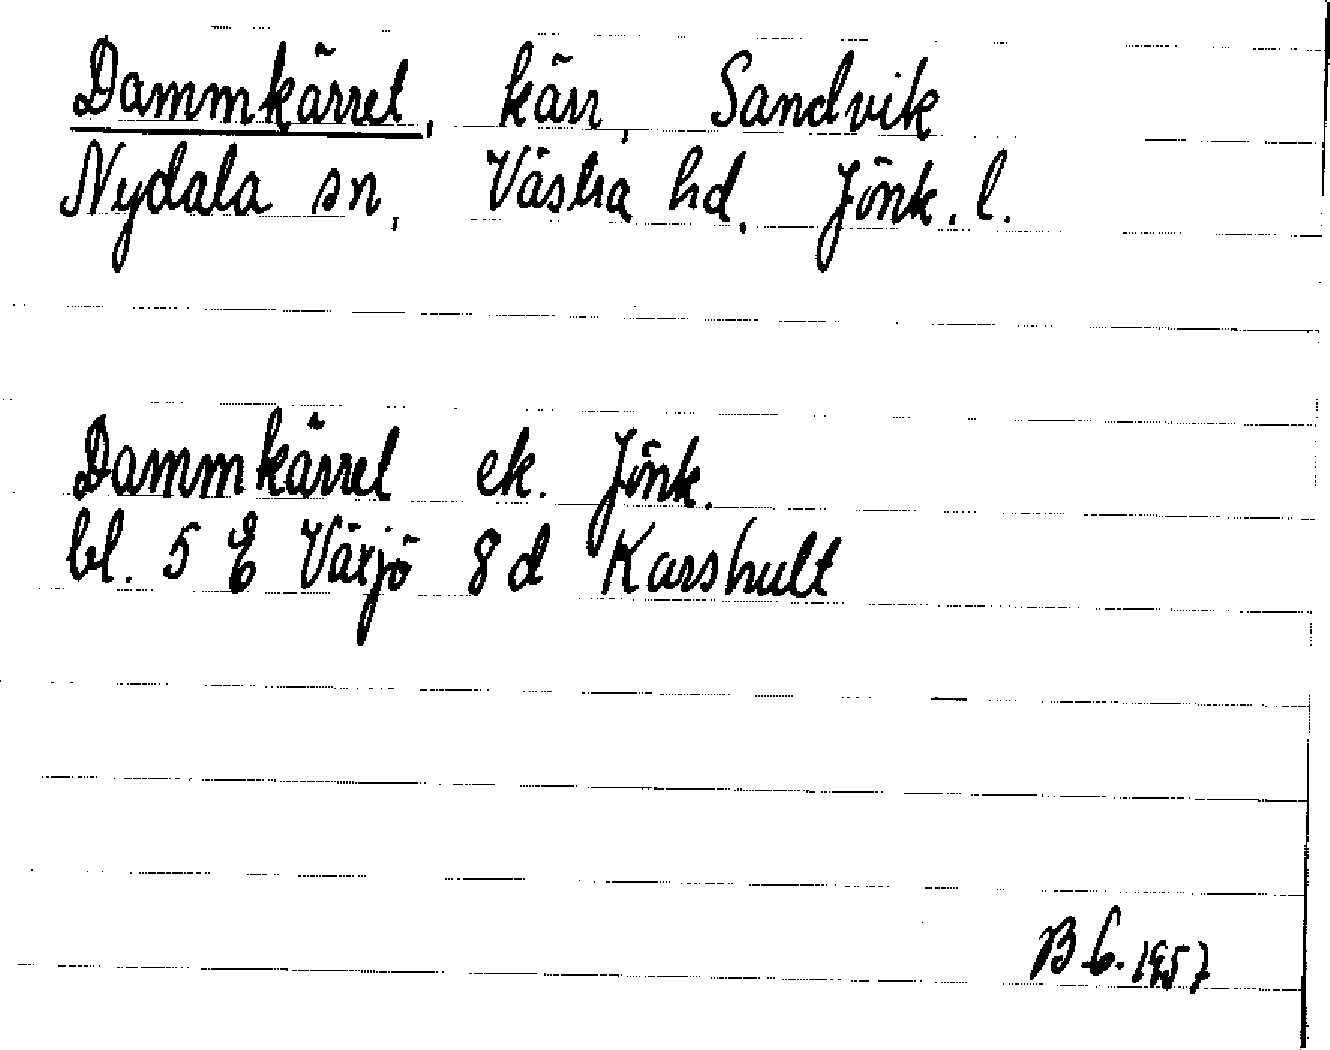 Dammkärret, kärr, Sandvik
Nydala sn, Västra hd, Jönk. l.
Dammkärret ek. Jönk.
bl. 5 E Växjö 8d Karshult
1957